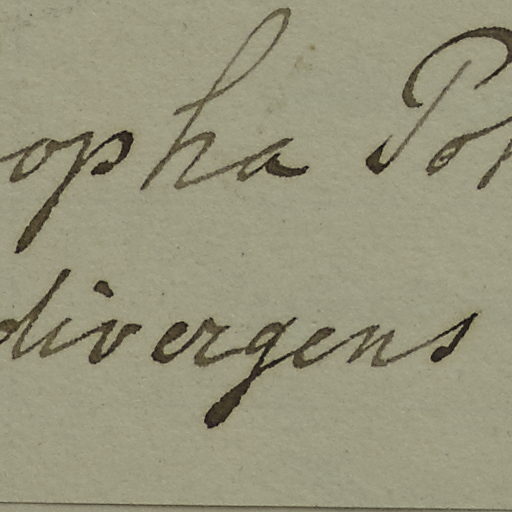 opha Poh
divergens